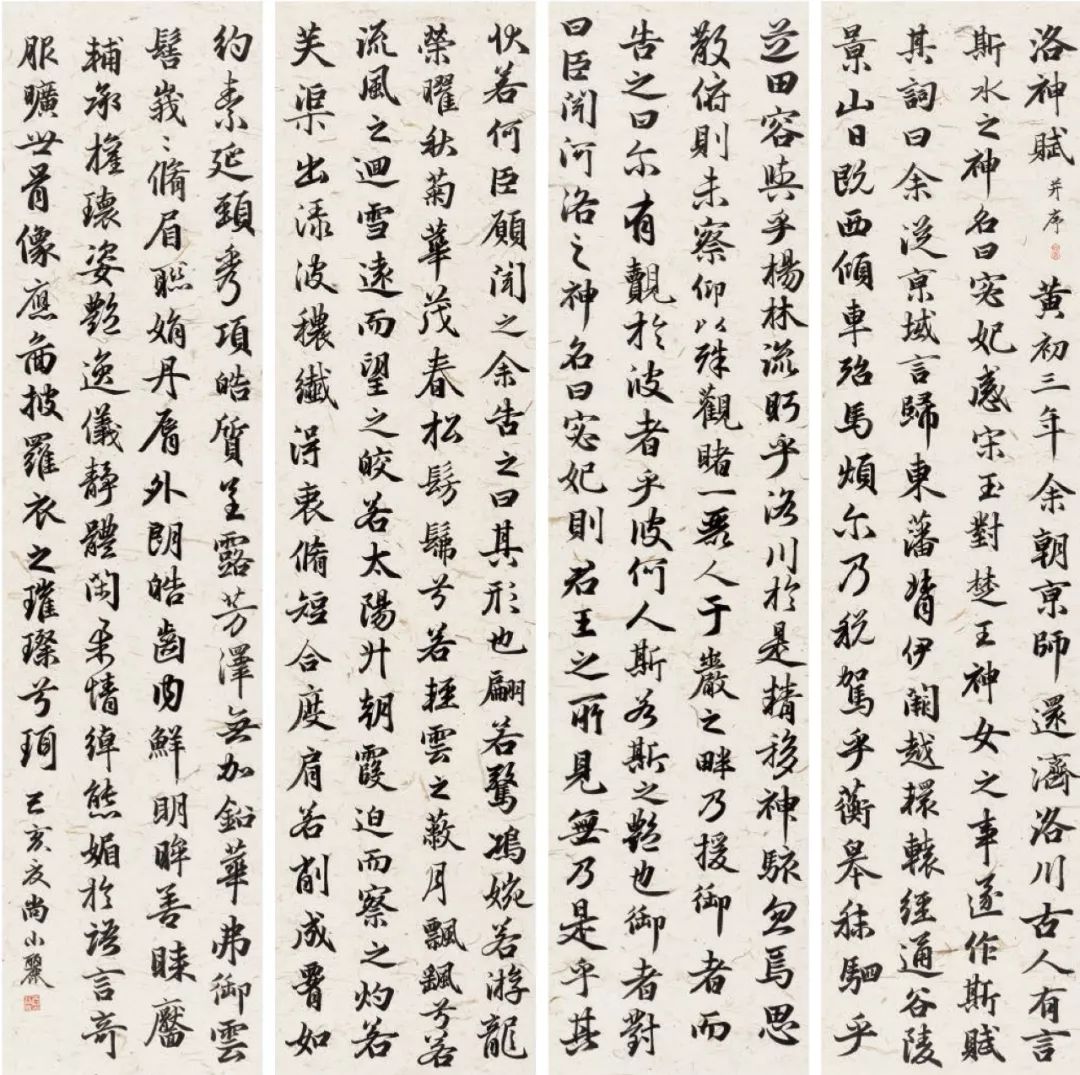 洛神賦 并序 黄初三年余朝京師還濟洛川古人有言
斯水之神名曰宓妃感宋玉對楚王神女之事遂作斯賦
其詞曰余從京域言歸東藩背伊闕越轘轅經通谷陵
景山日既西傾車殆馬煩尔乃税駕乎蘅皋秣駟乎
芝田容與乎楊林流眄乎洛川於是精移神駭忽焉思
散俯則未察仰以殊觀睹一麗人于巖之畔乃援御者而
告之曰尔有覿於彼者乎彼何人斯若斯之艷也御者對
曰臣聞河洛之神名曰宓妃則君王之所見無乃是乎其
状若何臣願聞之余告之曰其形也翩若驚鴻婉若游龍
榮曜秋菊華茂春松髣髴兮若輕雲之蔽月飄飖兮若
流風之迴雪遠而望之皎若太陽升朝霞迫而察之灼若
芙渠出渌波穠纖得衷脩短合度肩若削成腰如
約素延頸秀項皓質呈露芳澤無加鉛華弗御雲
髻峩〻脩眉聯娟丹唇外朗皓齒内鮮明眸善睞靨
輔承權瓌姿艷逸儀静體閑柔情綽態媚於語言奇
服曠世骨像應圖披羅衣之璀璨兮珥 己亥夏尚小麗